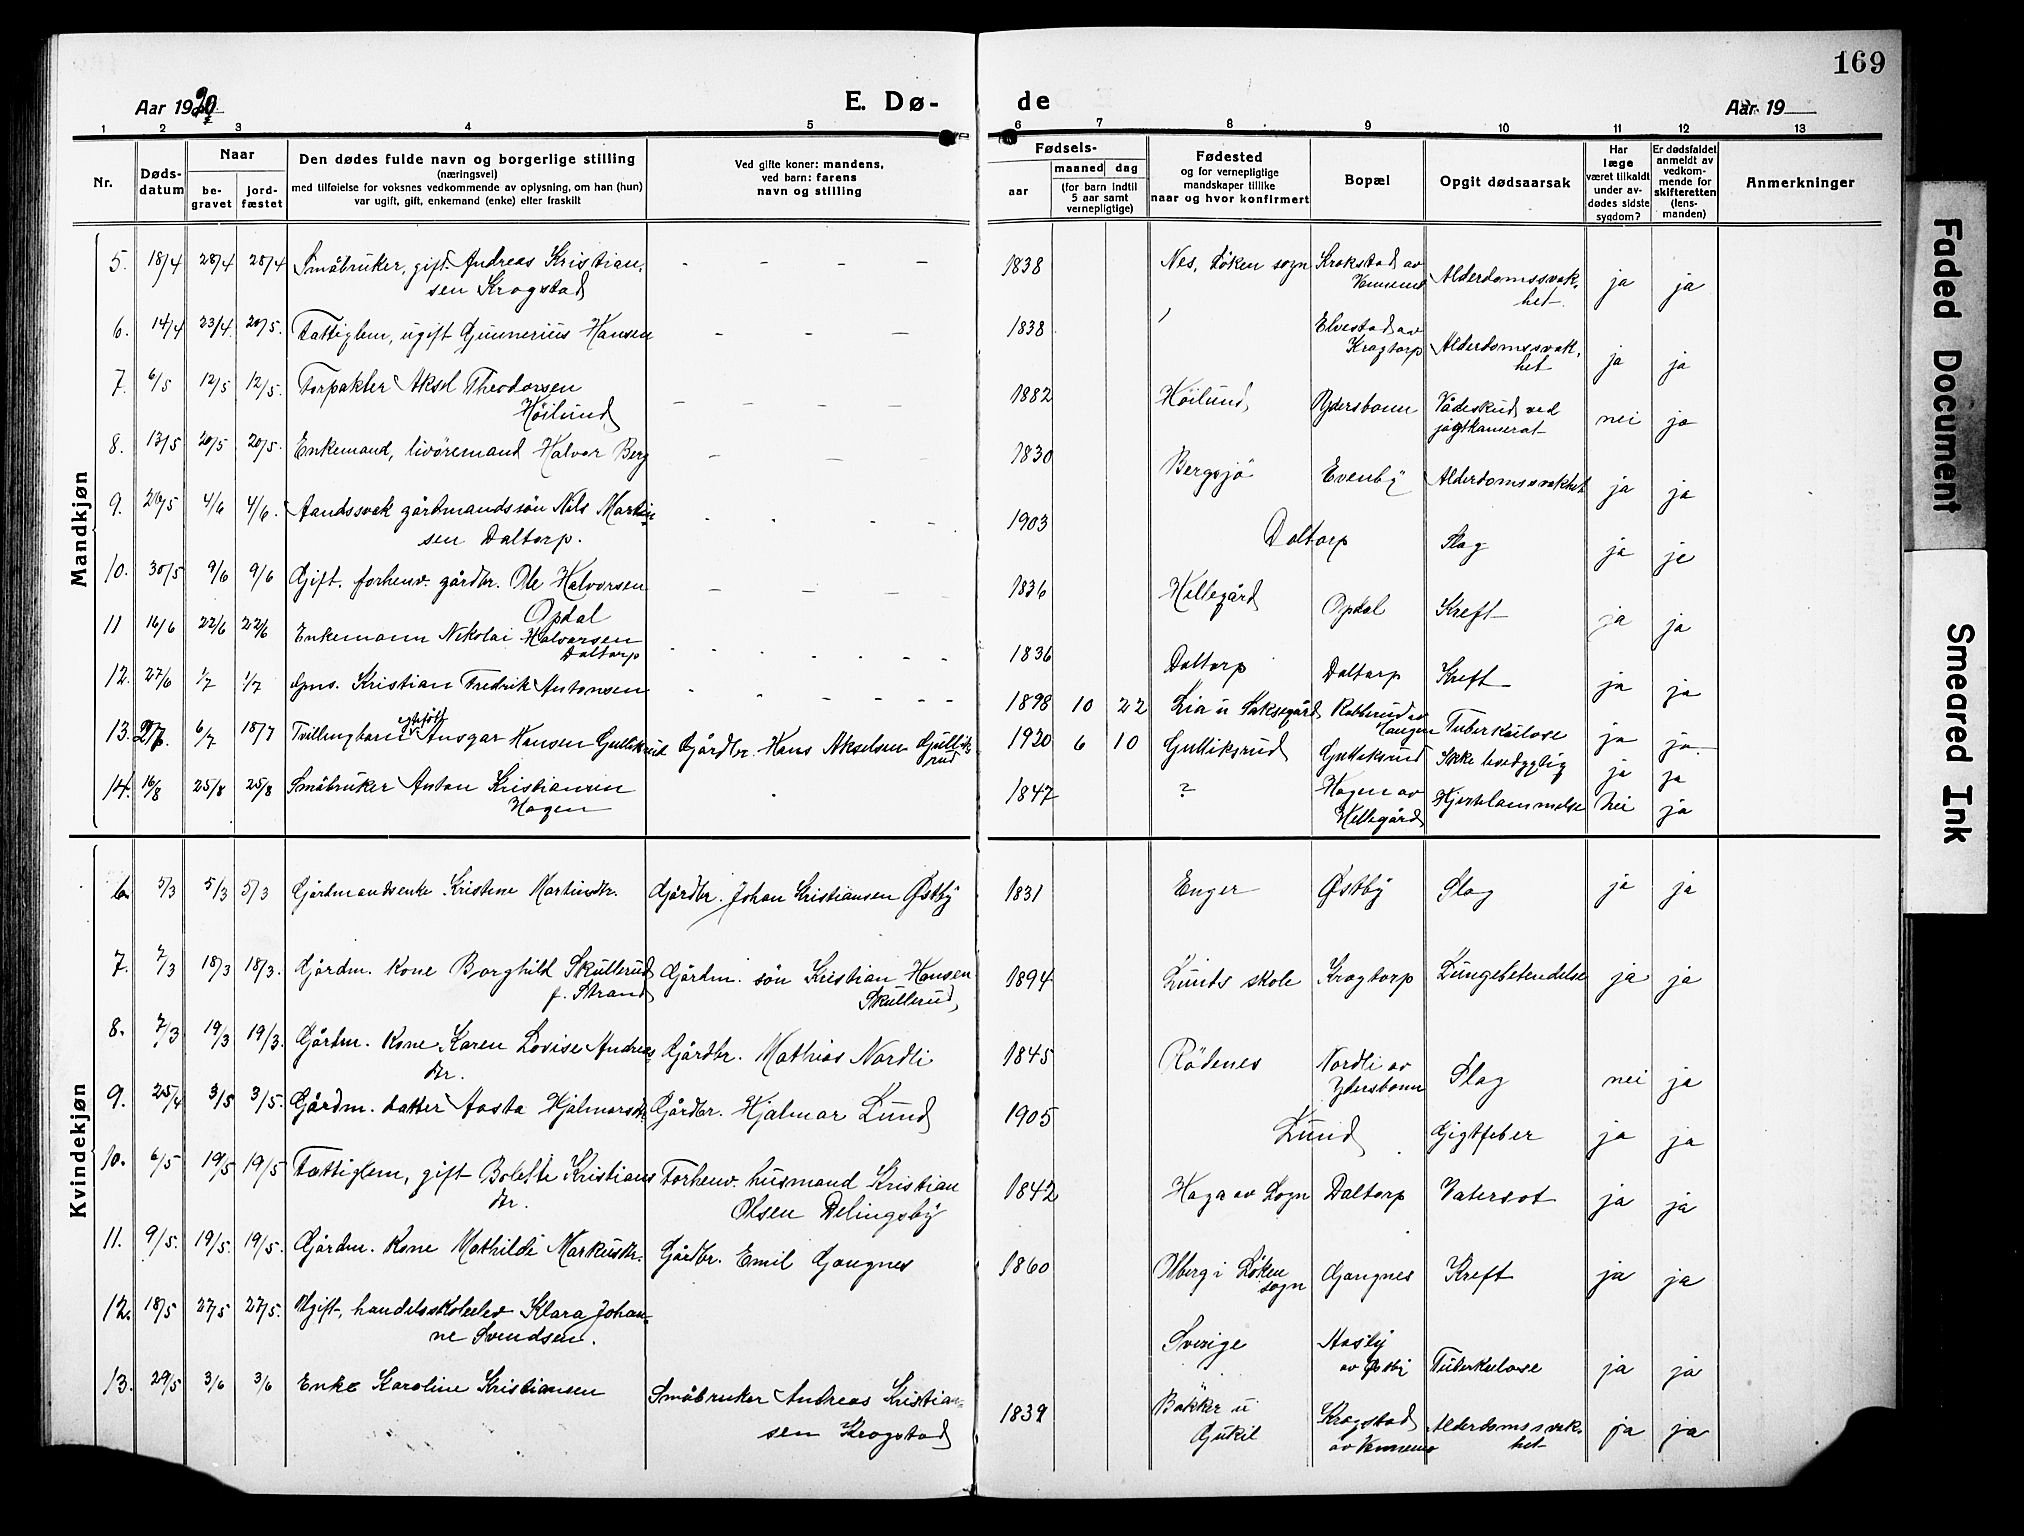 169
Aar 1920
E. Dø-
de
Aar 19
1 2 3 4 5 6 7 8 9 10 11 12 13
Nr.
Døds-
datum
Naar
be-
gravet
jord-
fæstet
Den dødes fulde navn og borgerlige stilling
(næringsvei)
med tilføielse for voksnes vedkommende av oplysning, om han (hun)
var ugift, gift, enkemand (enke) eller fraskilt
Ved gifte koner: mandens,
ved barn: farens
navn og stilling
Fødsels-
aar
maaned
dag
(for barn indtil
5 aar samt
vernepligtige)
Fødested
og for vernepligtige
mandskaper tillike
naar og hvor konfirmert
Bopæl
Opgit dødsaarsak
Har
læge
været tilkaldt
under av-
dødes sidste
sygdom?
Er dødsfaldet
anmeldt av
vedkom-
mende for
skifteretten
(lens-
manden)
Anmerkninger
Mandkjøn
5. 18/4 28/4 28/4 Småbruker, gift. Andreas Kristian-
sen Krogstad
- - - - 1838 Nes, Løken sogn Krokstad av
Vennemo Alderdomssvak-
het. ja ja
6. 14/4 23/4 20/5. Fattiglem, ugift Gunnerius Hansen - - - 1838 Elvestad av
Kragtorp Alderdomssvak-
het ja ja
7. 6/5 12/5 12/5. Forpakter Aksel Theodorsen
Höilund
- - - - 1882 Höilund Ydersbonn Vådeskud ved
jagtkamerat nei ja
8. 13/5 20/5 20/5. Enkemand, livöremand Halvor Berg - - - 1830 Bergsjö Evenby Alderdomssvakhet ja ja
9. 26/5 4/6 4/6. Aandssvak gårdmandssön Nils Martin-
sen Daltorp.
- - - - 1903 Daltorp Slag ja ja
10. 30/5 9/6 9/6 Gift. forhenv. gårdbr. Ole Halvorsen
Opdal
- - - - 1836 Hellegård Opdal Kreft ja ja
11 16/6 22/6 22/6 Enkemann Nikolai Halvorsen
Daltorp
- - - - 1836 Daltorp Daltorp Kreft ja ja
12. 27/6 1/7 1/7 Gms. Kristian Fredrik Antonsen - - - - 1898 10 22 Lia u Saksegård Kabberud av
Haugen Tuberkulose ja ja
13. 29/6. 6/7 18/7 Tvillingbarn Ansgar Hansen Gulliksrud Gårdbr. Hans Akselsen Gulliks-
rud 1920 6 10 Gulliksrud Gulliksrud Ikke livdygtig ja ja
14. 16/8 25/8 25/8 Småbruker Anton Kristiansen
Hagen
1847 ? Hagen av
Hellegård Hjertelammelse Nei ja
Kvindekjøn
6. 5/3 5/3 5/3 Gårdmandsenke Kristine Martinsdtr. Gårdbr. Johan Kristiansen Østby 1831 Enger Østby Slag ja ja
7. 7/3 18/3 18/3. Gårdm. kone Borghild Skullerud
f. Strand
Gårdm. sön Kristian Hansen
Skullerud
1894 Lunds skole Kragtorp Lungebetendelse ja ja
8. 7/3 19/3 19/3. Gårdm. kone Karen Lovise Andreas
dtr.
Gårdbr. Mathias Nordli 1845 Rödenes Nordli av
Ydersbonn Slag nei ja
9. 25/4 3/5 3/5. Gårdm. datter Aasta Hjalmarsdtr. Gårdbr. Hjalmar Lund 1905 Lund Gigtfeber ja ja
10. 6/5 19/5 19/5. Fattiglem, gift Bolette Kristians
dtr.
Forhenv. husmand Kristian
Olsen Delingsby
1842 Haga av Sogn Daltorp Vatersot ja ja
11. 9/5. 19/5. 19/5. Gårdm. kone Mathilde Markusdtr. Gårdbr. Emil Gangnes 1860 Olberg i Løken
sogn Gangnes Kreft ja ja
12. 18/5 27/5 27/5. Ugift, handelsskoleelev Klara Johan-
ne Svendsen.
Sverige Aasly
av Østby Tuberkulose ja ja
13. 29/5 3/6 3/6 Enke Karoline Kristiansen Småbruker Andreas Kristian-
sen Krogstad
1839 Bakker u
Gukil Krogstad
av Vennemo Alderdomssvak-
het ja ja
Faded Document
Smeared Ink